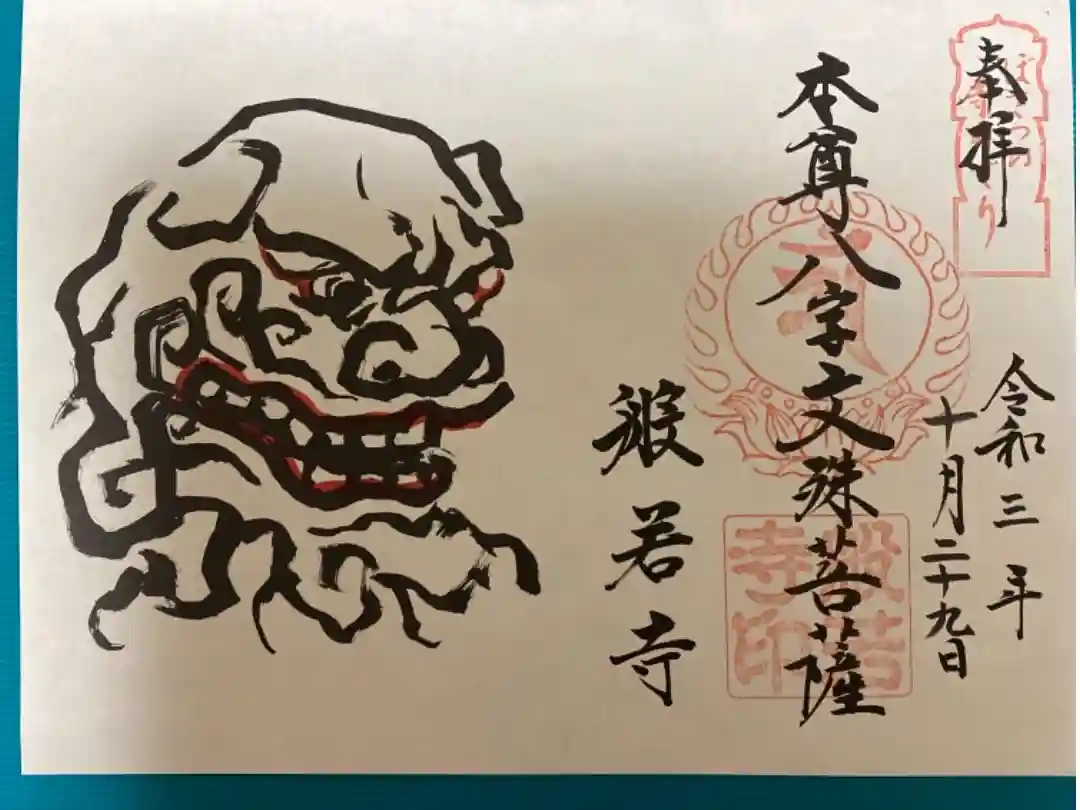 奉拝
本尊八字文殊菩薩
般若寺
令和三年
十月二十九日
般若
寺印